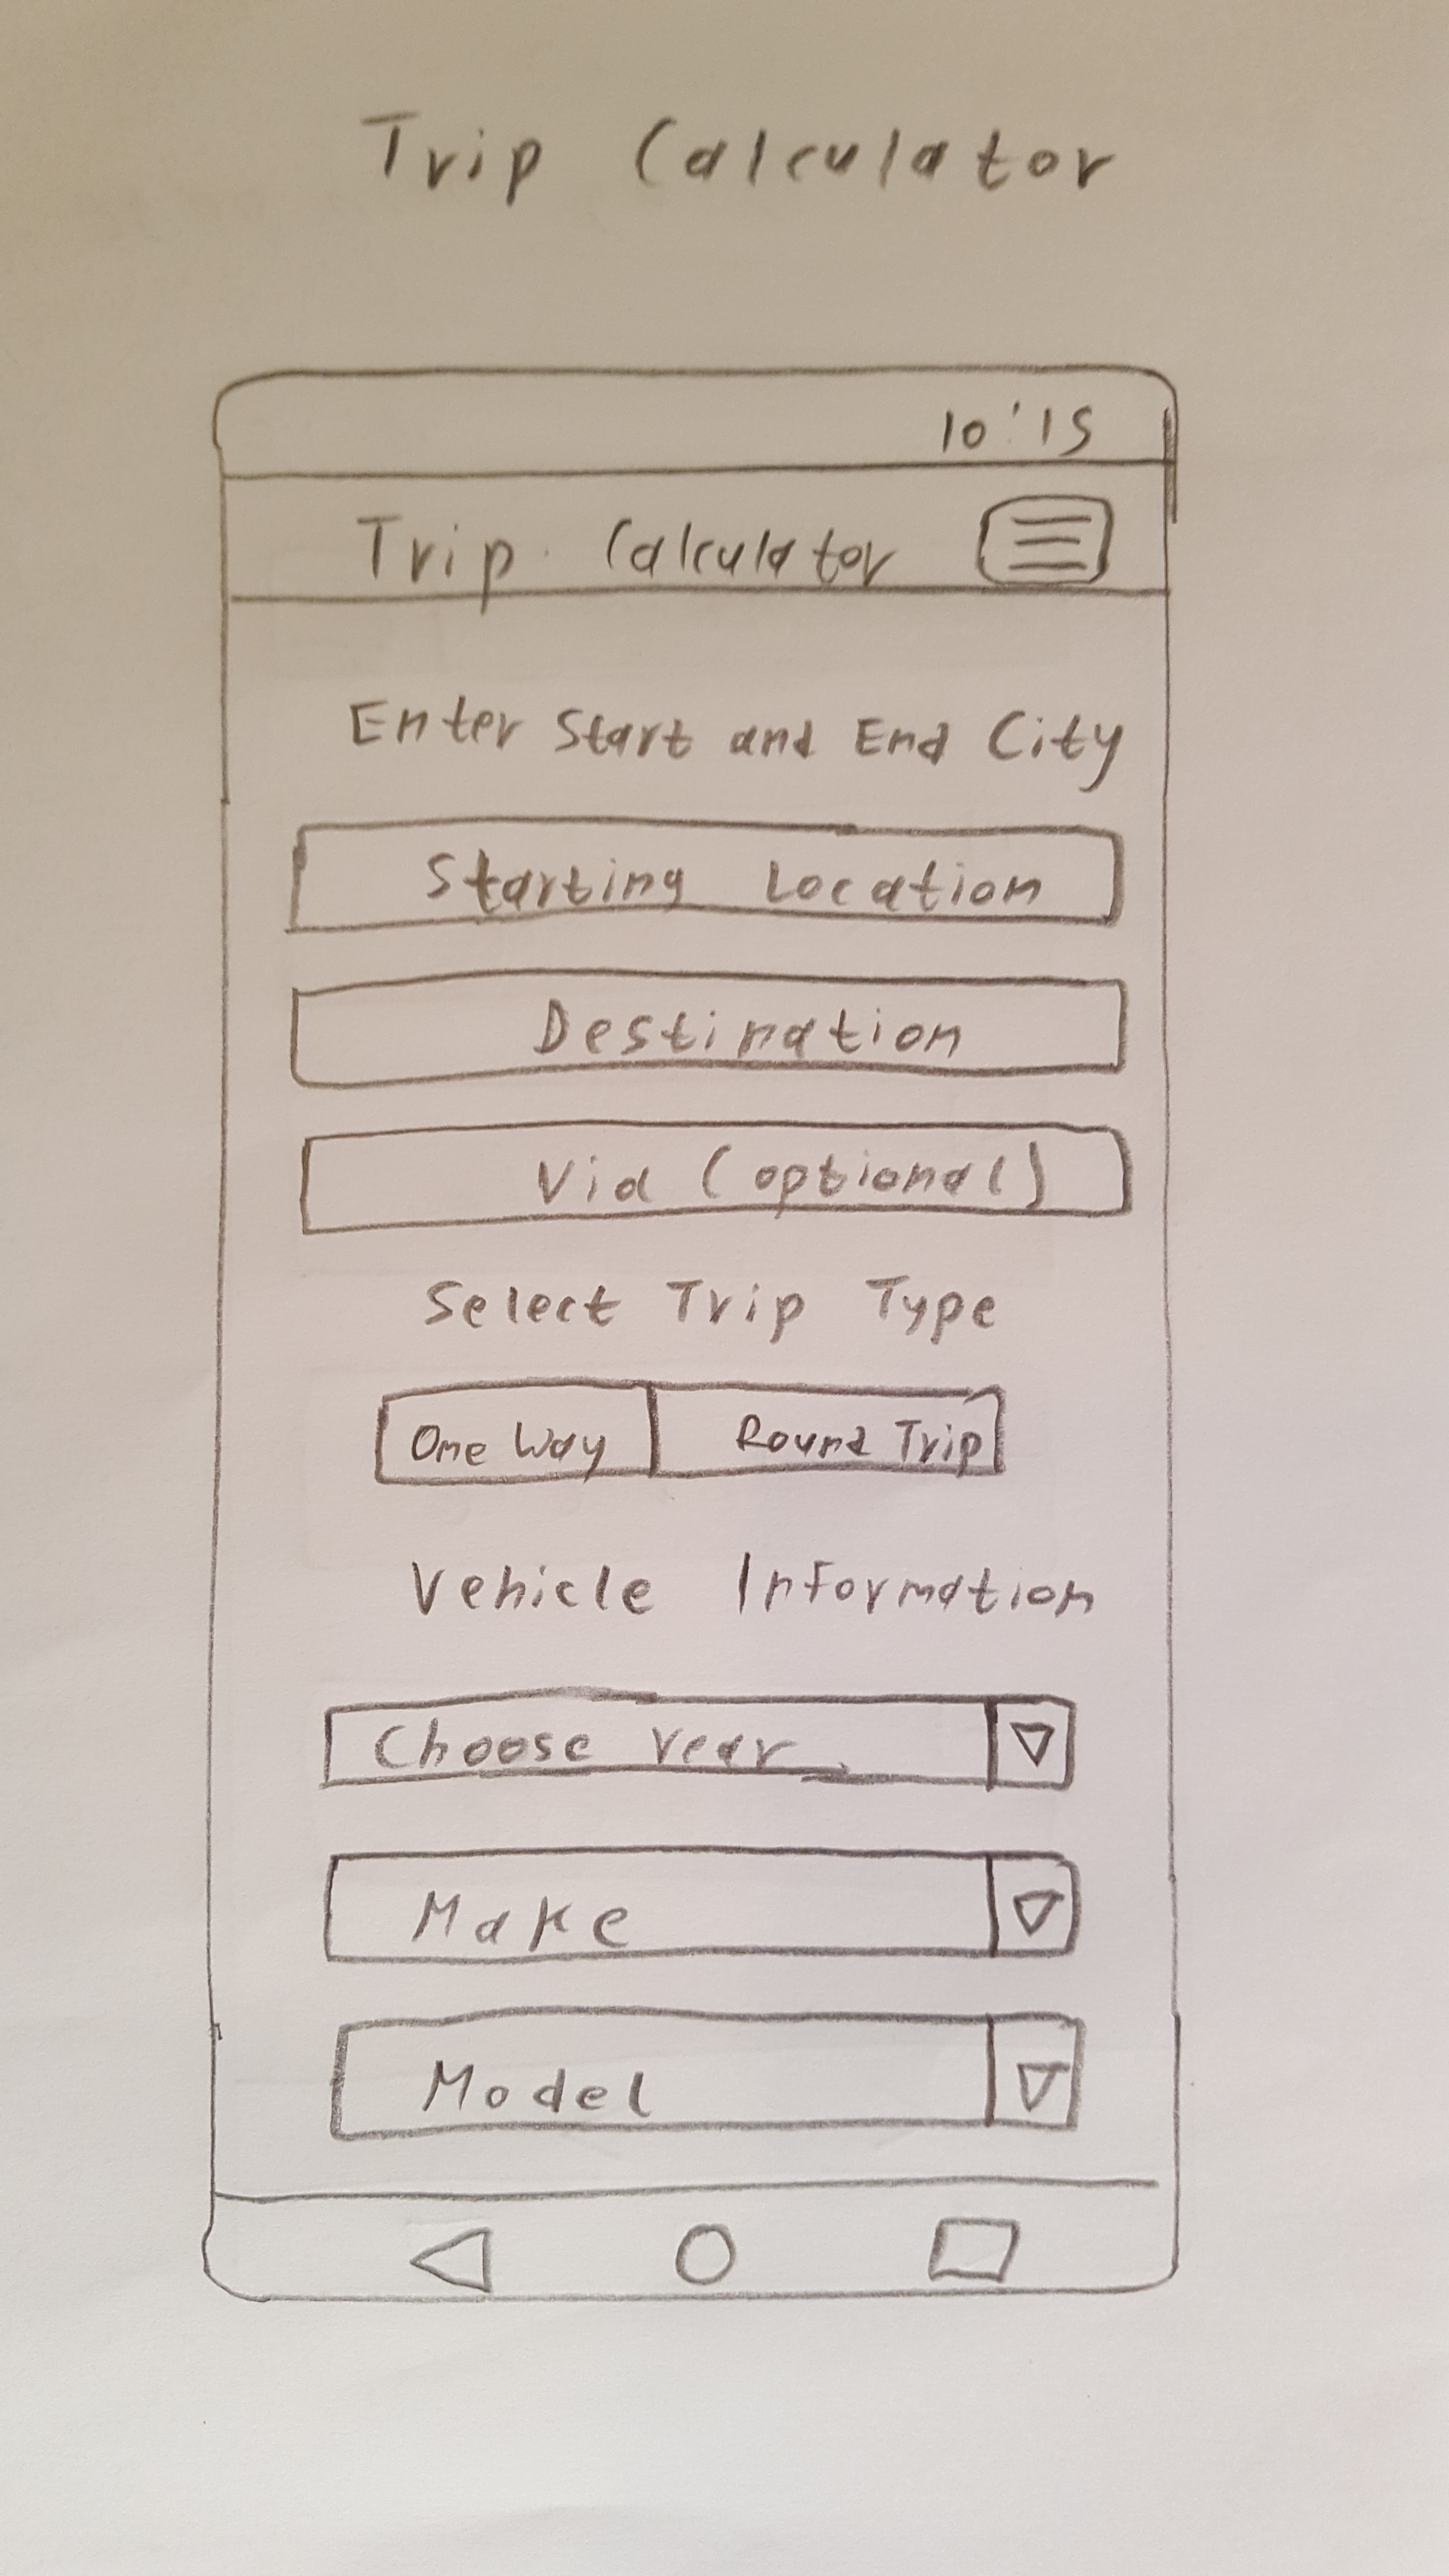 Trip Calculator
10:15
Trip Calculator
Enter Start and End City
Starting Location
Destination
Via (optional)
Select Trip Type
One Way Round Trip
Vehicle Information
Choose Year
Make
Model